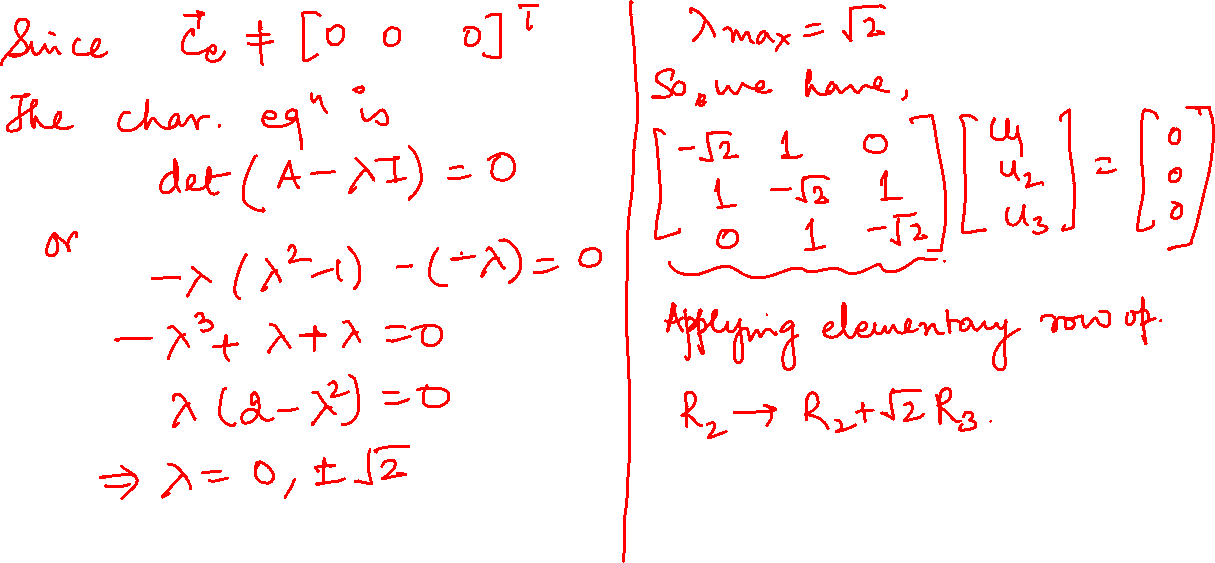 Since C⃗e ≠ [0 0 0]ᵀ
The char. eqⁿ is
det(A-λI) = 0
or
-λ(λ²-1) - (-λ) = 0
-λ³ + λ + λ = 0
λ(2-λ²) = 0
⇒ λ = 0, ±√2
λmax = √2
So, we have,
[-√2 1 0] [u₁] = [0]
[1 -√2 1] [u₂] = [0]
[0 1 -√2] [u₃] = [0]
Applying elementary row op.
R₂ → R₂+√2 R₃.